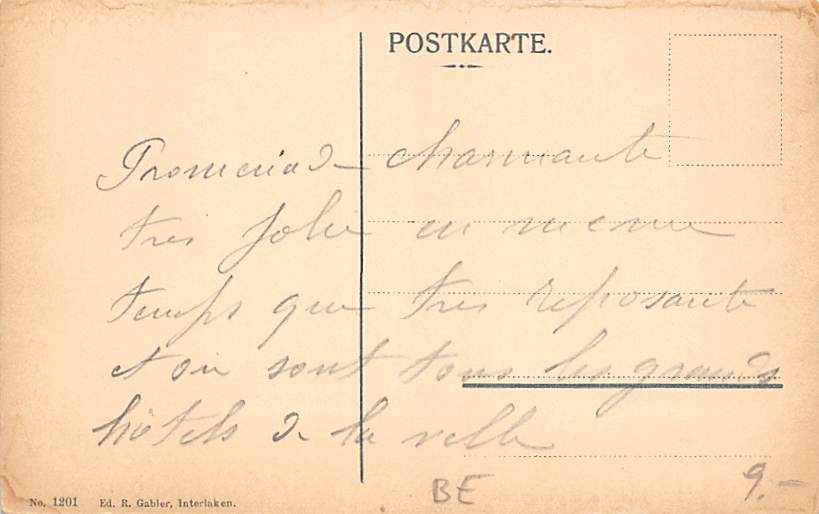 POSTKARTE.
Promenade charmante
très jolie en meme
temps que très reposante
et ou sont tous les grands
hôtels de la ville
No. 1201 Ed. R. Gabler, Interlaken.
BE 9.-